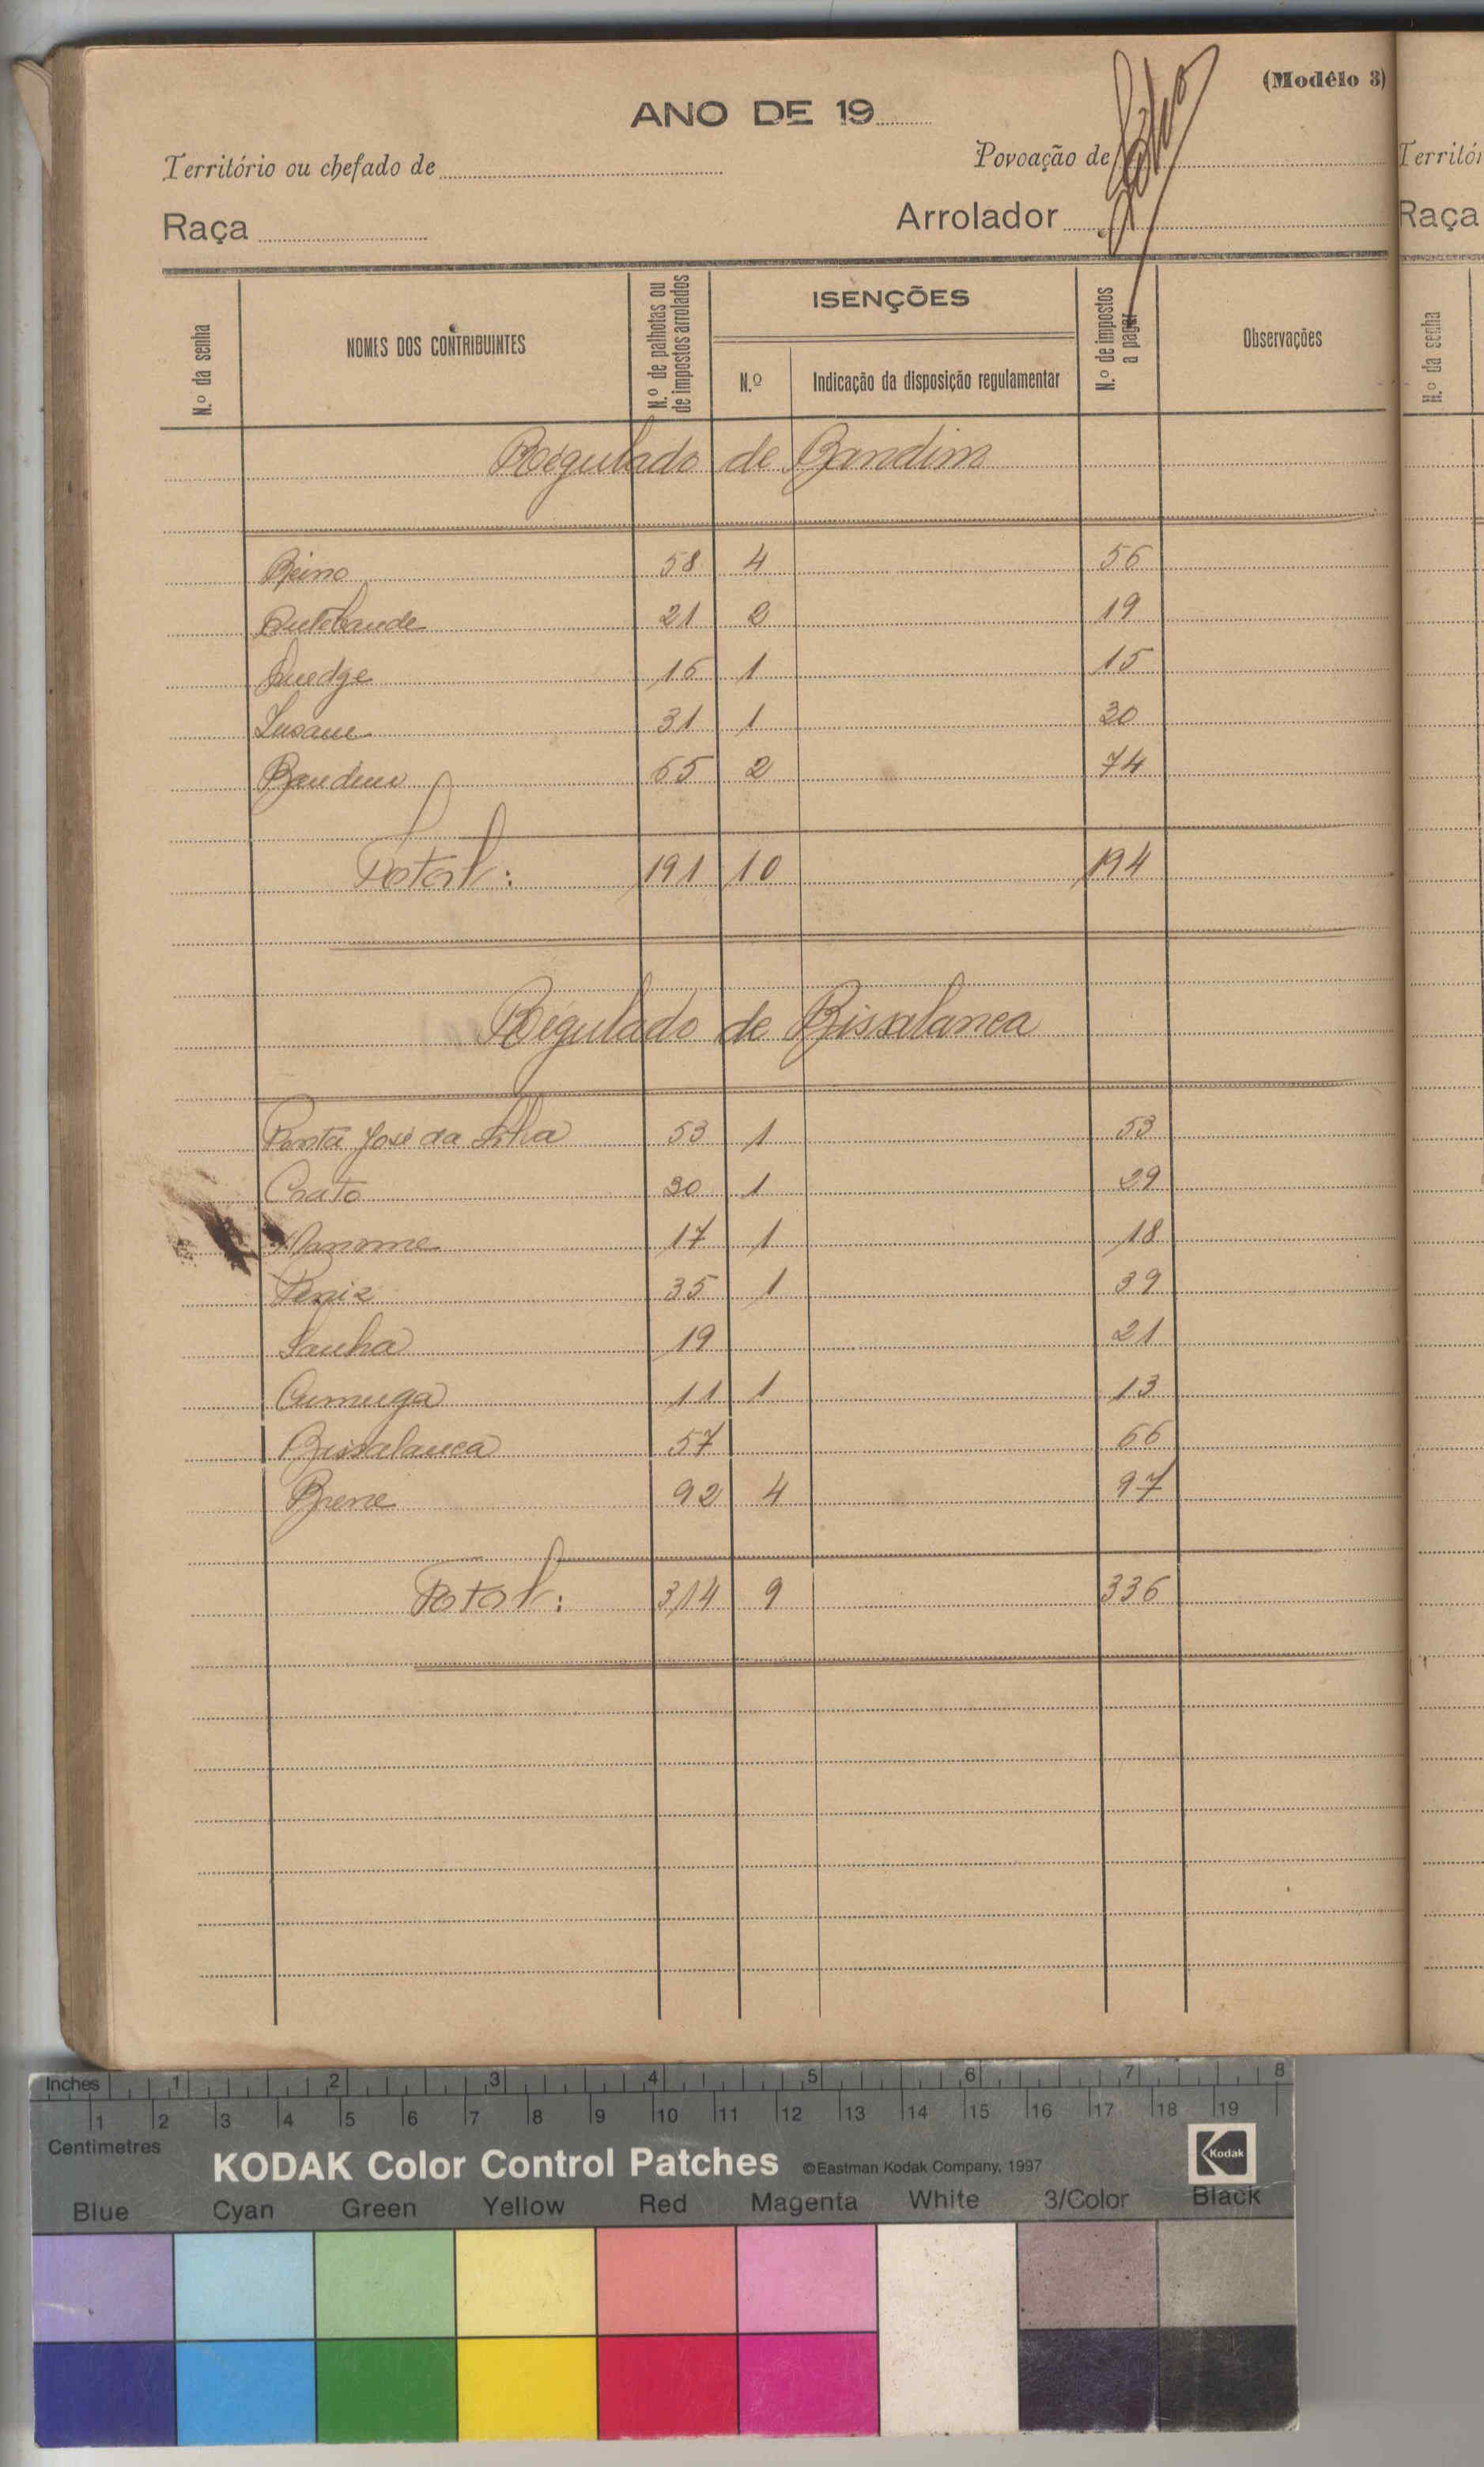 (Modêlo 3)
ANO DE 19
Território ou chefado de Povoação de
Raça Arrolador
N.º da senha NOMES DOS CONTRIBUINTES N.º de palhotas ou de impostos arrolados ISENÇÕES N.º Indicação da disposição regulamentar N.º de impostos a pagar Observações
Regulado de Bandim
58 4 56
21 2 19
16 1 15
31 1 30
Bandim 65 2 74
Total: 191 10 194
Regulado de Bissalanca
Ponta José da Silva 53 1 53
Crato 30 1 29
17 1 18
35 1 39
Sanha 19 21
Cumuga 11 1 13
Bissalanca 57 66
Brene 92 4 97
Total: 314 9 336
Territó
Raça
N.º da senha
Inches 1 2 3 4 5 6 7 8
1 2 3 4 5 6 7 8 9 10 11 12 13 14 15 16 17 18 19
Centimetres
KODAK Color Control Patches ©Eastman Kodak Company, 1997 Kodak
Blue Cyan Green Yellow Red Magenta White 3/Color Black